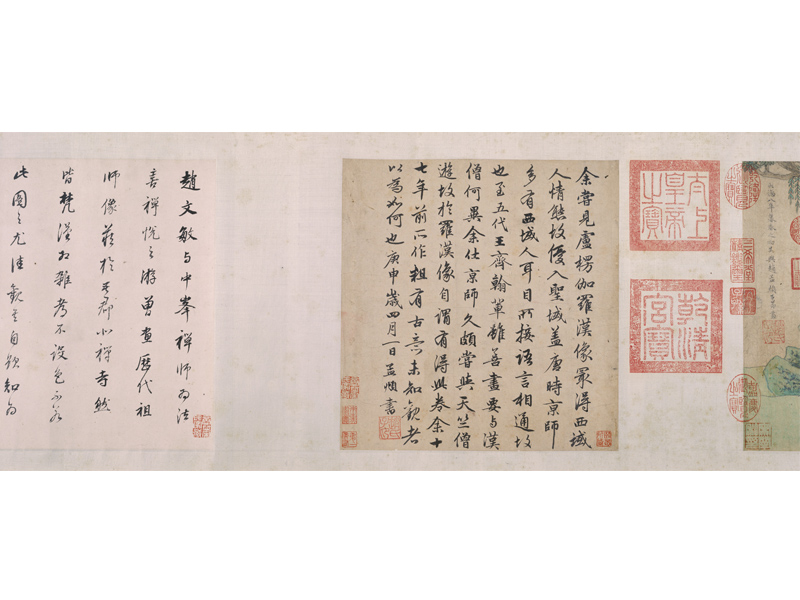 大德八年暮春之初吳興趙孟頫子昂畫
太上
皇帝
之寶
乾清
宮寶
余嘗見盧楞伽羅漢像最得西域
人情態故優入聖域蓋唐時京師
多有西域人耳目所接語言相通故
也至五代王齊翰輩雖善畫要與漢
僧何異余仕京師久頗嘗與天竺僧
遊故於羅漢像自謂有得此卷余十
七年前所作粗有古意未知觀者
以為如何也庚申歲四月一日孟頫書
趙文敏與中峯禪師為法
喜禪悅之游曾畫歷代祖
師像藏於吳郡北禪寺然
皆梵漢相雜不設色不若
此圖之尤佳觀其自跋知為